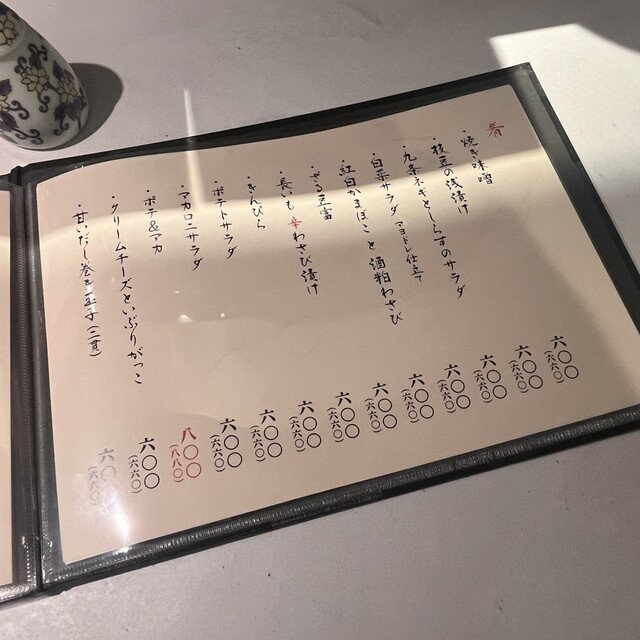 肴
・焼き味噌
・枝豆の浅漬け
・九条ネギとしらすのサラダ
・白菜サラダ マヨドレ仕立て
・紅白かまぼこと酒粕わさび
・ざる豆富
・長いも辛わさび漬け
・きんぴら
・ポテトサラダ
・マカロニサラダ
・ポテ&マカ
・クリームチーズといぶりがっこ
・甘いだし巻き玉子(二貫)
六〇〇
(六六〇)
六〇〇
(六六〇)
六〇〇
(六六〇)
六〇〇
(六六〇)
六〇〇
(六六〇)
六〇〇
(六六〇)
六〇〇
(六六〇)
六〇〇
(六六〇)
六〇〇
(六六〇)
六〇〇
(六六〇)
八〇〇
(八八〇)
六〇〇
(六六〇)
六〇〇
(六六〇)